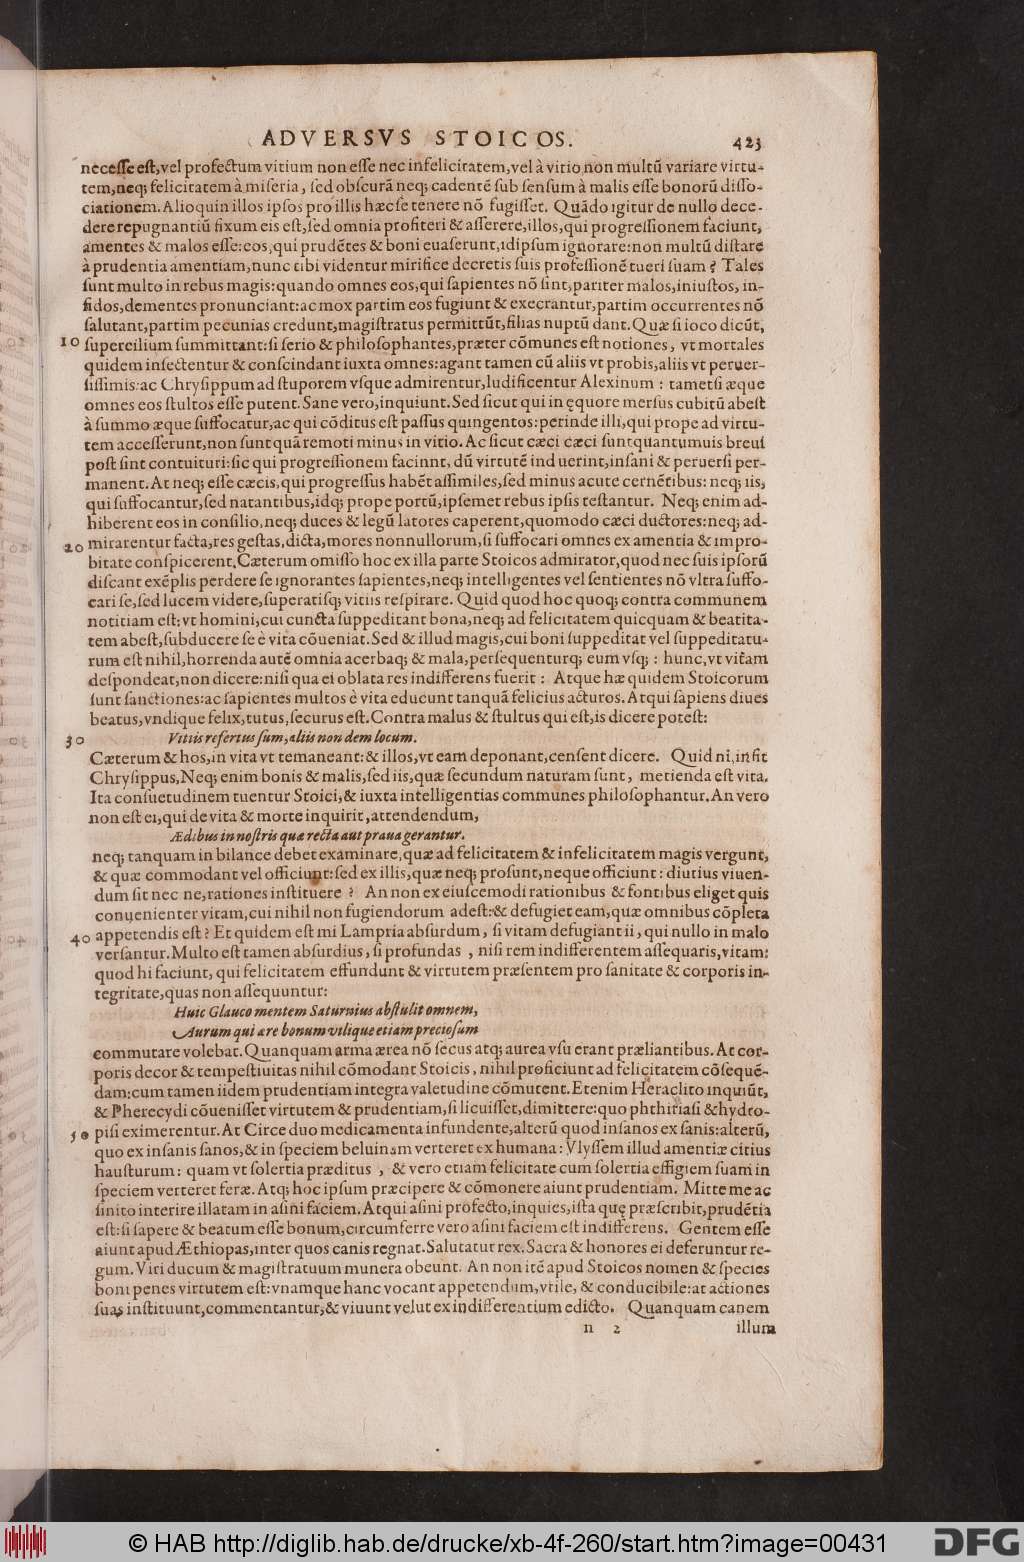 ADVERSVS STOICOS. 423
necesse est, vel profectum vitium non esse nec infelicitatem, vel à vitio non multũ variare virtu-
tem, neq; felicitatem à miseria, sed obscurã neq; cadentẽ sub sensum à malis esse bonorũ disso-
ciationem. Alioquin illos ipsos pro illis hæc se tenere nõ fugisset. Quãdo igitur de nullo dece-
dere repugnantiũ fixum eis est, sed omnia profiteri & asserere, illos, qui progressionem faciunt,
amentes & malos esse: eos, qui prudẽtes & boni euaserunt, idipsum ignorare: non multũ distare
à prudentia amentiam, nunc tibi videntur mirifice decretis suis professionẽ tueri suam? Tales
sunt multo in rebus magis: quando omnes eos, qui sapientes nõ sint, pariter malos, iniustos, in-
fidos, dementes pronunciant: ac mox partim eos fugiunt & execrantur, partim occurrentes nõ
salutant, partim pecunias credunt, magistratus permittũt, filias nuptũ dant. Quæ si ioco dicũt,
10 supercilium summittant: si serio & philosophantes, præter cõmunes est notiones, vt mortales
quidem insectentur & conscindant iuxta omnes: agant tamen cũ aliis vt probis, aliis vt peruer-
sissimis: ac Chrysippum ad stuporem vsque admirentur, ludificentur Alexinum: tametsi æque
omnes eos stultos esse putent. Sane vero, inquiunt. Sed sicut qui in ęquore mersus cubitũ abest
à summo æque suffocatur, ac qui cõditus est passus quingentos: perinde illi, qui prope ad virtu-
tem accesserunt, non sunt quã remoti minus in vitio. Ac sicut cæci cæci sunt quantumuis breui
post sint contuituri: sic qui progressionem facinnt, dũ virtutẽ induerint, insani & peruersi per-
manent. At neq; esse cæcis, qui progressus habẽt assimiles, sed minus acute cernẽtibus: neq; iis,
qui suffocantur, sed natantibus, idq; prope portũ, ipsemet rebus ipsis testantur. Neq; enim ad-
hiberent eos in consilio, neq; duces & legũ latores caperent, quomodo cæci ductores: neq; ad-
20 mirarentur facta, res gestas, dicta, mores nonnullorum, si suffocari omnes ex amentia & impro-
bitate conspicerent. Cæterum omisso hoc ex illa parte Stoicos admirator, quod nec suis ipsorũ
discant exẽplis perdere se ignorantes sapientes, neq; intelligentes vel sentientes nõ vltra suffo-
cari se, sed lucem videre, superatisq; vitiis respirare. Quid quod hoc quoq; contra communem
notitiam est: vt homini, cui cuncta suppeditant bona, neq; ad felicitatem quicquam & beatita-
tem abest, subducere se è vita cõueniat. Sed & illud magis, cui boni suppeditat vel suppeditatu-
rum est nihil, horrenda autẽ omnia acerbaq; & mala, persequenturq; eum vsq;: hunc, vt vitam
despondeat, non dicere: nisi qua ei oblata res indifferens fuerit: Atque hæ quidem Stoicorum
sunt sanctiones: ac sapientes multos è vita educunt tanquã felicius acturos. Atqui sapiens diues
beatus, vndique felix, tutus, securus est. Contra malus & stultus qui est, is dicere potest:
30 Vitiis refertus sum, aliis non dem locum.
Cæterum & hos, in vita vt temaneant: & illos, vt eam deponant, censent dicere. Quid ni, insit
Chrysippus, Neq; enim bonis & malis, sed iis, quæ secundum naturam sunt, metienda est vita.
Ita consuetudinem tuentur Stoici, & iuxta intelligentias communes philosophantur. An vero
non est ei, qui de vita & morte inquirit, attendendum,
Ædibus in nostris quæ recta aut praua gerantur.
neq; tanquam in bilance debet examinare, quæ ad felicitatem & infelicitatem magis vergunt,
& quæ commodant vel officiunt: sed ex illis, quæ neq; prosunt, neque officiunt: diutius viuen-
dum sit nec ne, rationes instituere? An non ex eiuscemodi rationibus & fontibus eliget quis
conuenienter vitam, cui nihil non fugiendorum adest: & defugiet eam, quæ omnibus cõpleta
40 appetendis est? Et quidem est mi Lampria absurdum, si vitam defugiant ii, qui nullo in malo
versantur. Multo est tamen absurdius, si profundas, nisi rem indifferentem assequaris, vitam:
quod hi faciunt, qui felicitatem effundunt & virtutem præsentem pro sanitate & corporis in-
tegritate, quas non assequuntur:
Huic Glauco mentem Saturnius abstulit omnem,
Aurum qui ære bonum vilique etiam preciosum
commutare volebat. Quanquam arma ærea nõ secus atq; aurea vsu erant præliantibus. At cor-
poris decor & tempestiuitas nihil cõmodant Stoicis, nihil proficiunt ad felicitatem cõsequẽ-
dam: cum tamen iidem prudentiam integra valetudine cõmutent. Etenim Heraclito inquiũt,
& Pherecydi cõuenisset virtutem & prudentiam, si licuisset, dimittere: quo phthiriasi & hydro-
50 pisi eximerentur. At Circe duo medicamenta infundente, alterũ quod insanos ex sanis: alterũ,
quo ex insanis sanos, & in speciem beluinam verteret ex humana: Vlyssem illud amentiæ citius
hausturum: quam vt solertia præditus, & vero etiam felicitate cum solertia effigiem suam in
speciem verteret feræ. Atq; hoc ipsum præcipere & cõmonere aiunt prudentiam. Mitte me ac
sinito interire illatam in asini faciem. Atqui asini profecto, inquies, ista quę præscribit, prudẽtia
est: si sapere & beatum esse bonum, circumferre vero asini faciem est indifferens. Gentem esse
aiunt apud Æthiopas, inter quos canis regnat. Salutatur rex. Sacra & honores ei deferuntur re-
gum. Viri ducum & magistratuum munera obeunt. An non itẽ apud Stoicos nomen & species
boni penes virtutem est: vnamque hanc vocant appetendum, vtile, & conducibile: at actiones
suas instituunt, commentantur, & viuunt velut ex indifferentium edicto. Quanquam canem
n 2 illum
© HAB http://diglib.hab.de/drucke/xb-4f-260/start.htm?image=00431
DFG